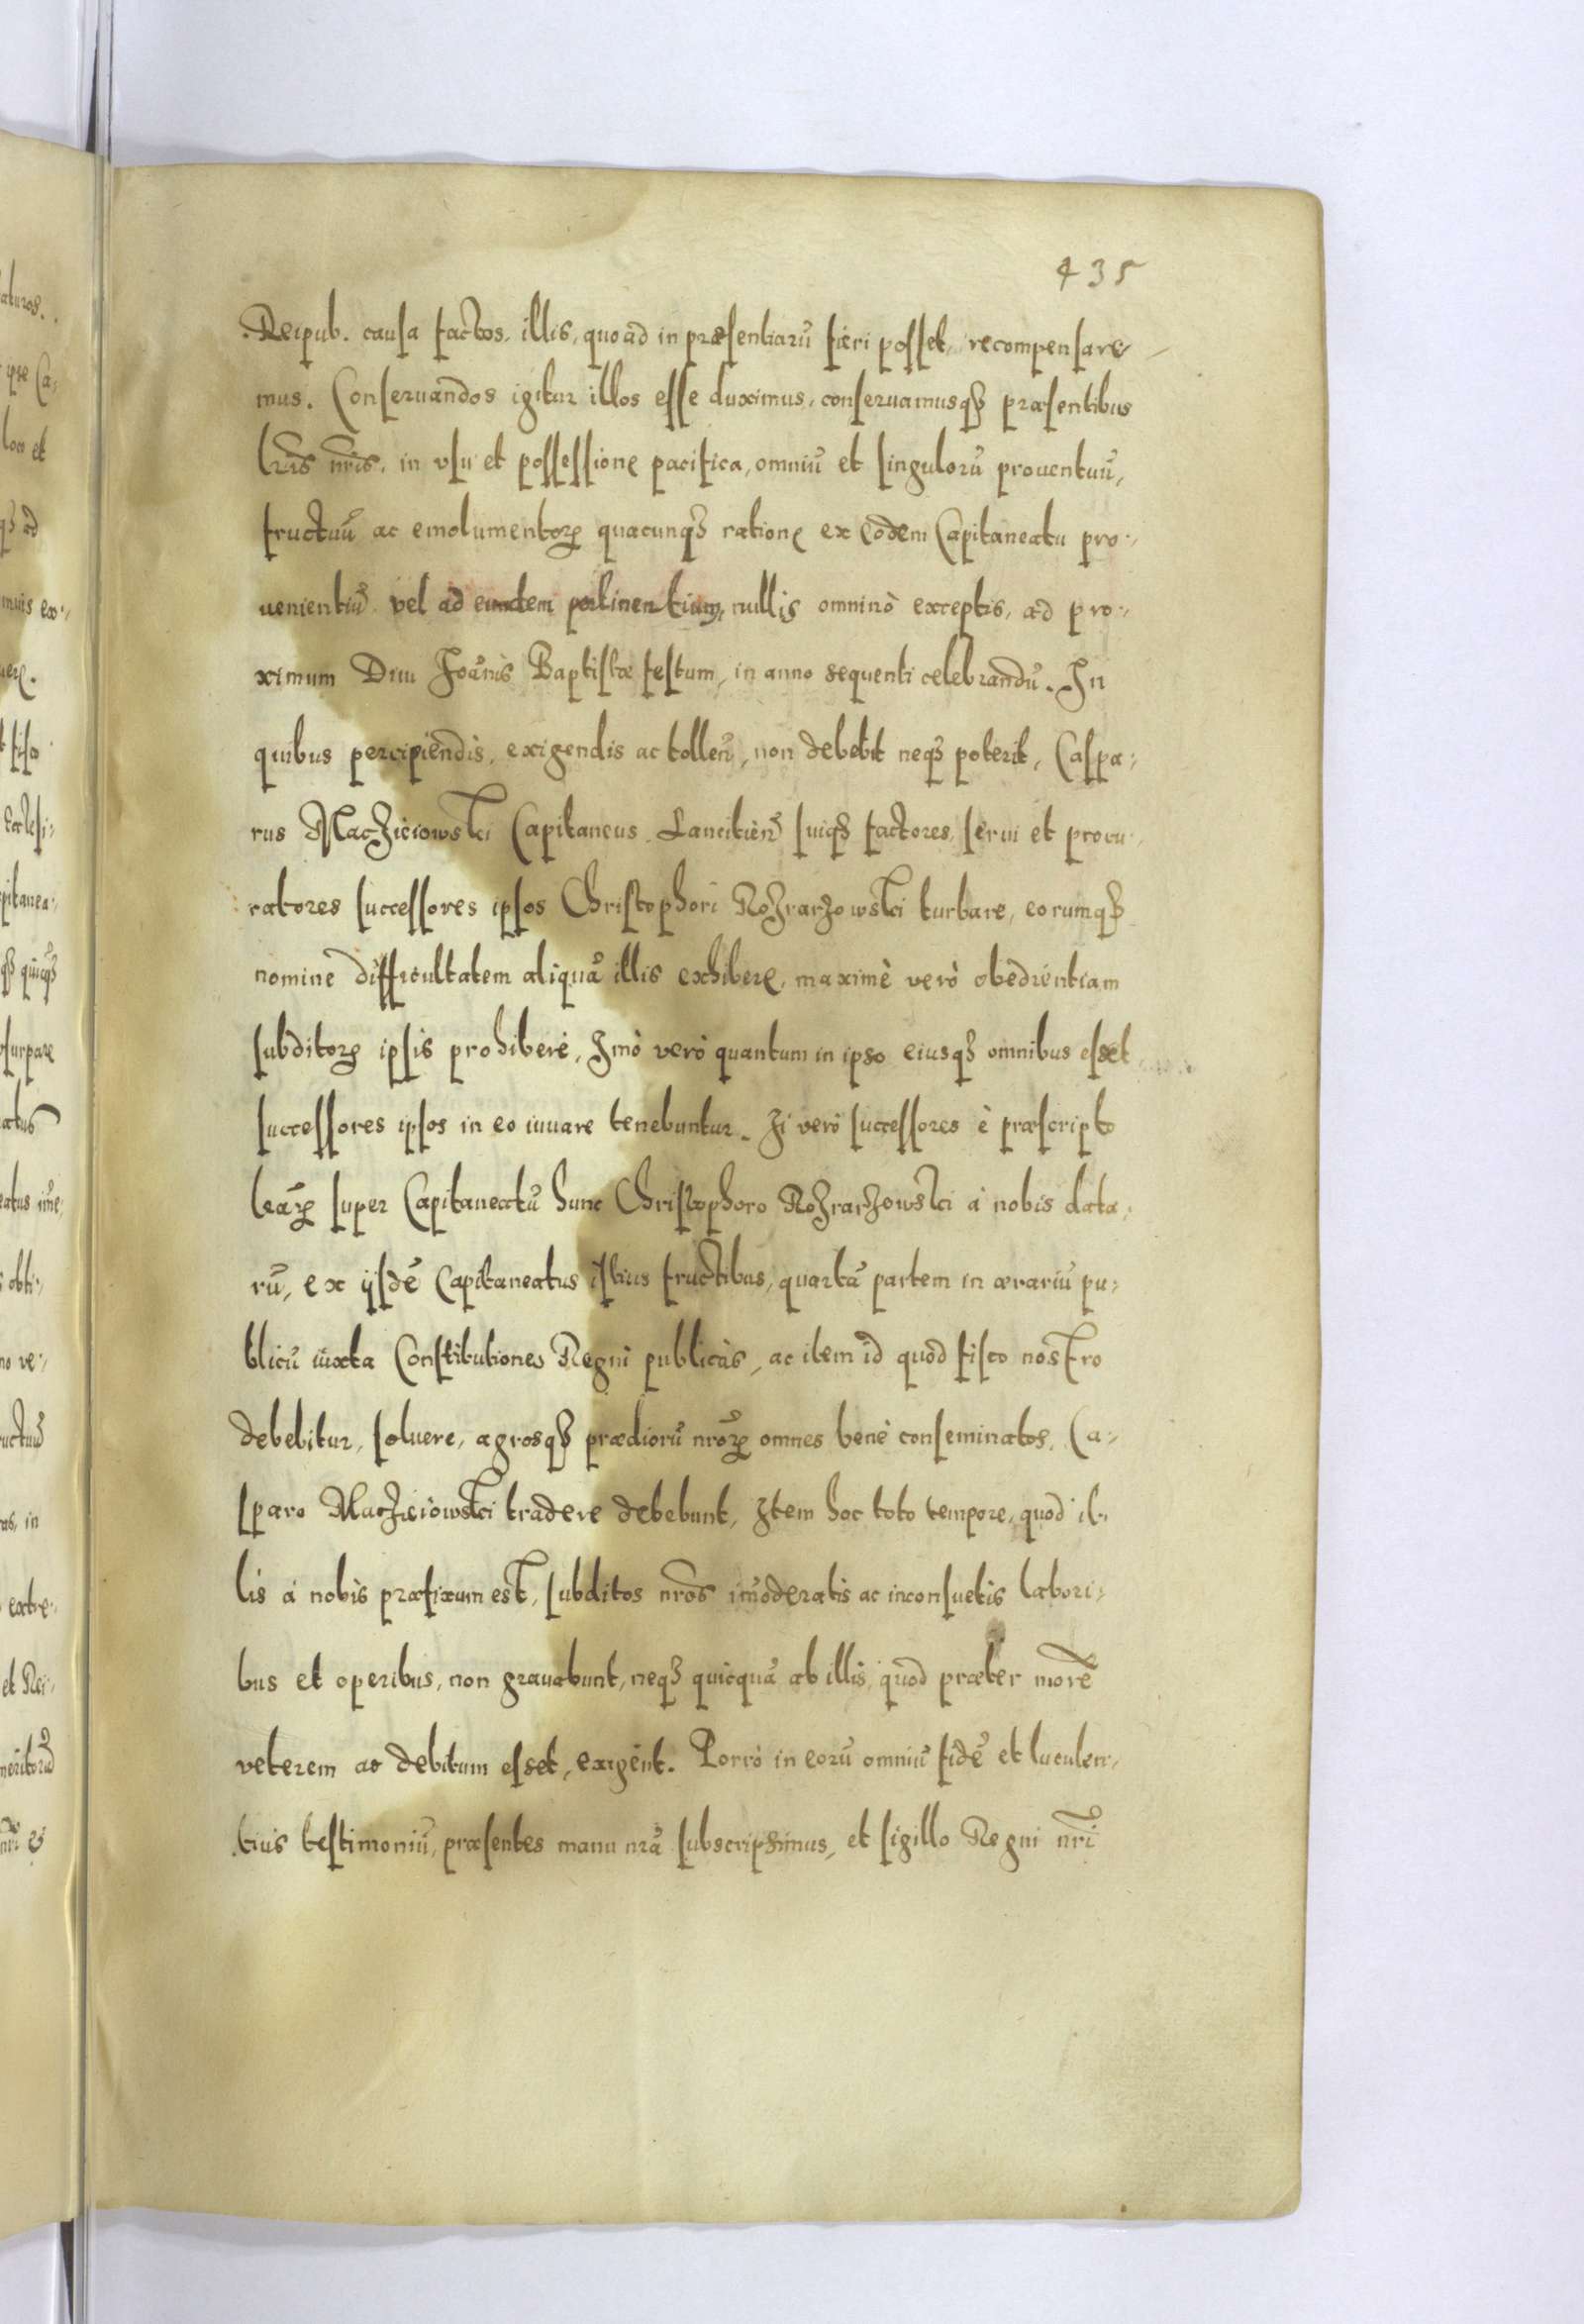 435
Reipub. causa factos, illis, quoad in præsentiarũ fieri posset, recompensare
mus. Conseruandos igitur illos esse duximus, conseruamusqȝ præsentibus
lrãs nrĩs, in vsu et possessione pacifica, omniũ et singulorũ prouentuũ,
fructuũ ac emolumentoꝝ quacunqȝ ratione ex eodem Capitaneatu pro-
uenientiũ vel ad eundem pertinentium, nullis omninò exceptis, ad pro-
ximum Diui Joãnis Baptistæ festum, in anno sequenti celebrandũ. In
quibus percipiendis, exigendis ac tollen̄, non debebit neqȝ poterit, Caspa-
rus Maczieiowski Capitaneus Lancitien̄ suiqȝ factores, serui et procu-
ratores successores ipsos Christophori Rozrarzowski turbare, eorumqȝ
nomine difficultatem aliquã illis exhibere, maximè verò obedientiam
subditoꝝ ipsis prohibere, Imò verò quantum in ipso eiusqȝ omnibus esset
successores ipsos in eo iuuare tenebuntur. Si verò successores è præscripto
lrãꝝ super Capitaneatũ hunc Christophoro Rozrarzowski à nobis data-
rũ, ex ijsdẽ Capitaneatus istius fructibus, quartã partem in ærariũ pu-
blicũ iuxta Constitutiones Regni publicas, ac item id quod fisco nostro
debebitur, soluere, agrosqȝ prædiorũ nrõꝝ omnes benè conseminatos, Ca-
sparo Maczieiowski tradere debebunt, Item hoc toto tempore, quod il-
lis à nobis præfixum est, subditos nrõs im̃oderatis ac inconsuetis labori-
bus et operibus, non grauabunt, neqȝ quicquã ab illis, quod præter morẽ
veterem ac debitum esset, exigent. Porrò in eorũ omniũ fidẽ et luculen-
tius testimoniũ, præsentes manu nrã subscripsimus, et sigillo Regni nrĩ